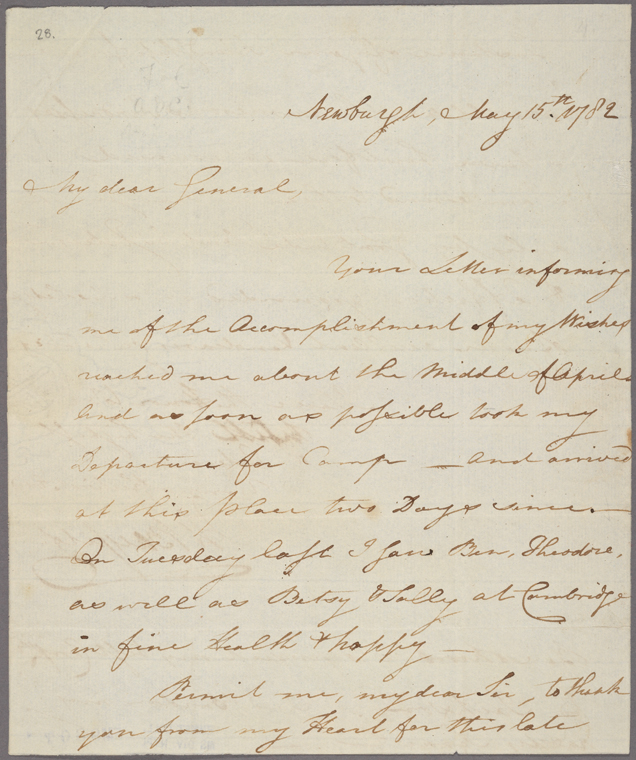 28.
Newburgh, May 15.th 1782
My dear General,
Your Letter informing
me of the Accomplishment of my Wishes
reached me about the Middle of April
and as soon as possible took my
Departure for Camp — and arrived
at this place two Days since. —
On Tuesday last I saw Ben, Theodore,
as well as Betsy & Sally at Cambridge
in fine Health & happy —
Permit me, my dear Sir, to thank
you from my Heart for this late